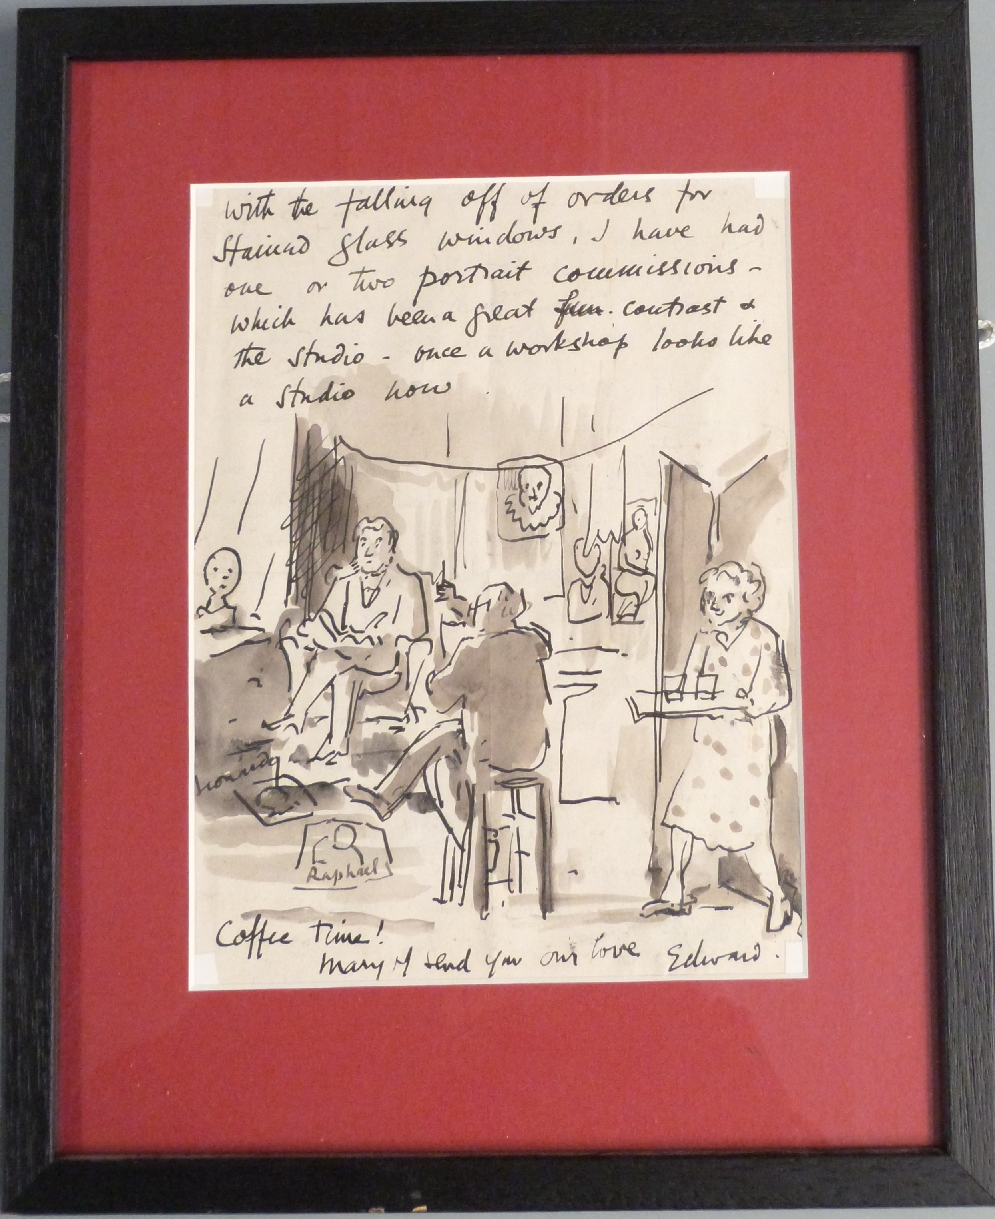 with the falling off of orders for
stained glass windows, I have had
one or two portrait commissions -
which has been a great fun. contrast &
the studio - once a workshop looks like
a studio now
Raphael
Coffee Time!
Mary & I send you our love Edward.